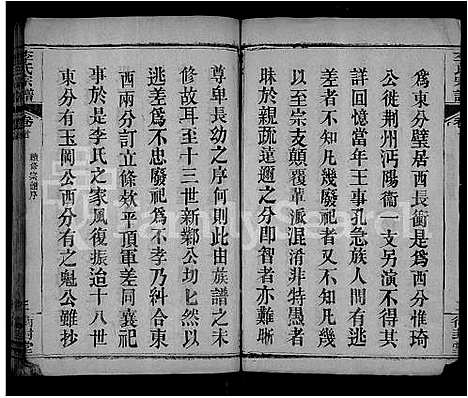 為東分璧居西長衝是爲西分惟琦
公徙荆州沔陽衞一支另派不得其
詳回憶當年王事孔急族人間有逃
差者又不知凡幾廢祀者又不知凡幾
至於宗支顛覆葦派混淆非特愚者
昧於親疏遠邇之分即智者亦難晰
尊卑長幼之序何則此由族譜之未
修故耳至十三世新鄰公切匕然以
逃差爲不忠廢祀爲不孝乃糾合東
西兩分訂立條欵平頂軍差同襄祀
事於是李氏之家風復振迨十八世
東分有玉岡公西分有之魁公雖抄
李氏宗譜
卷首
續修宗譜序